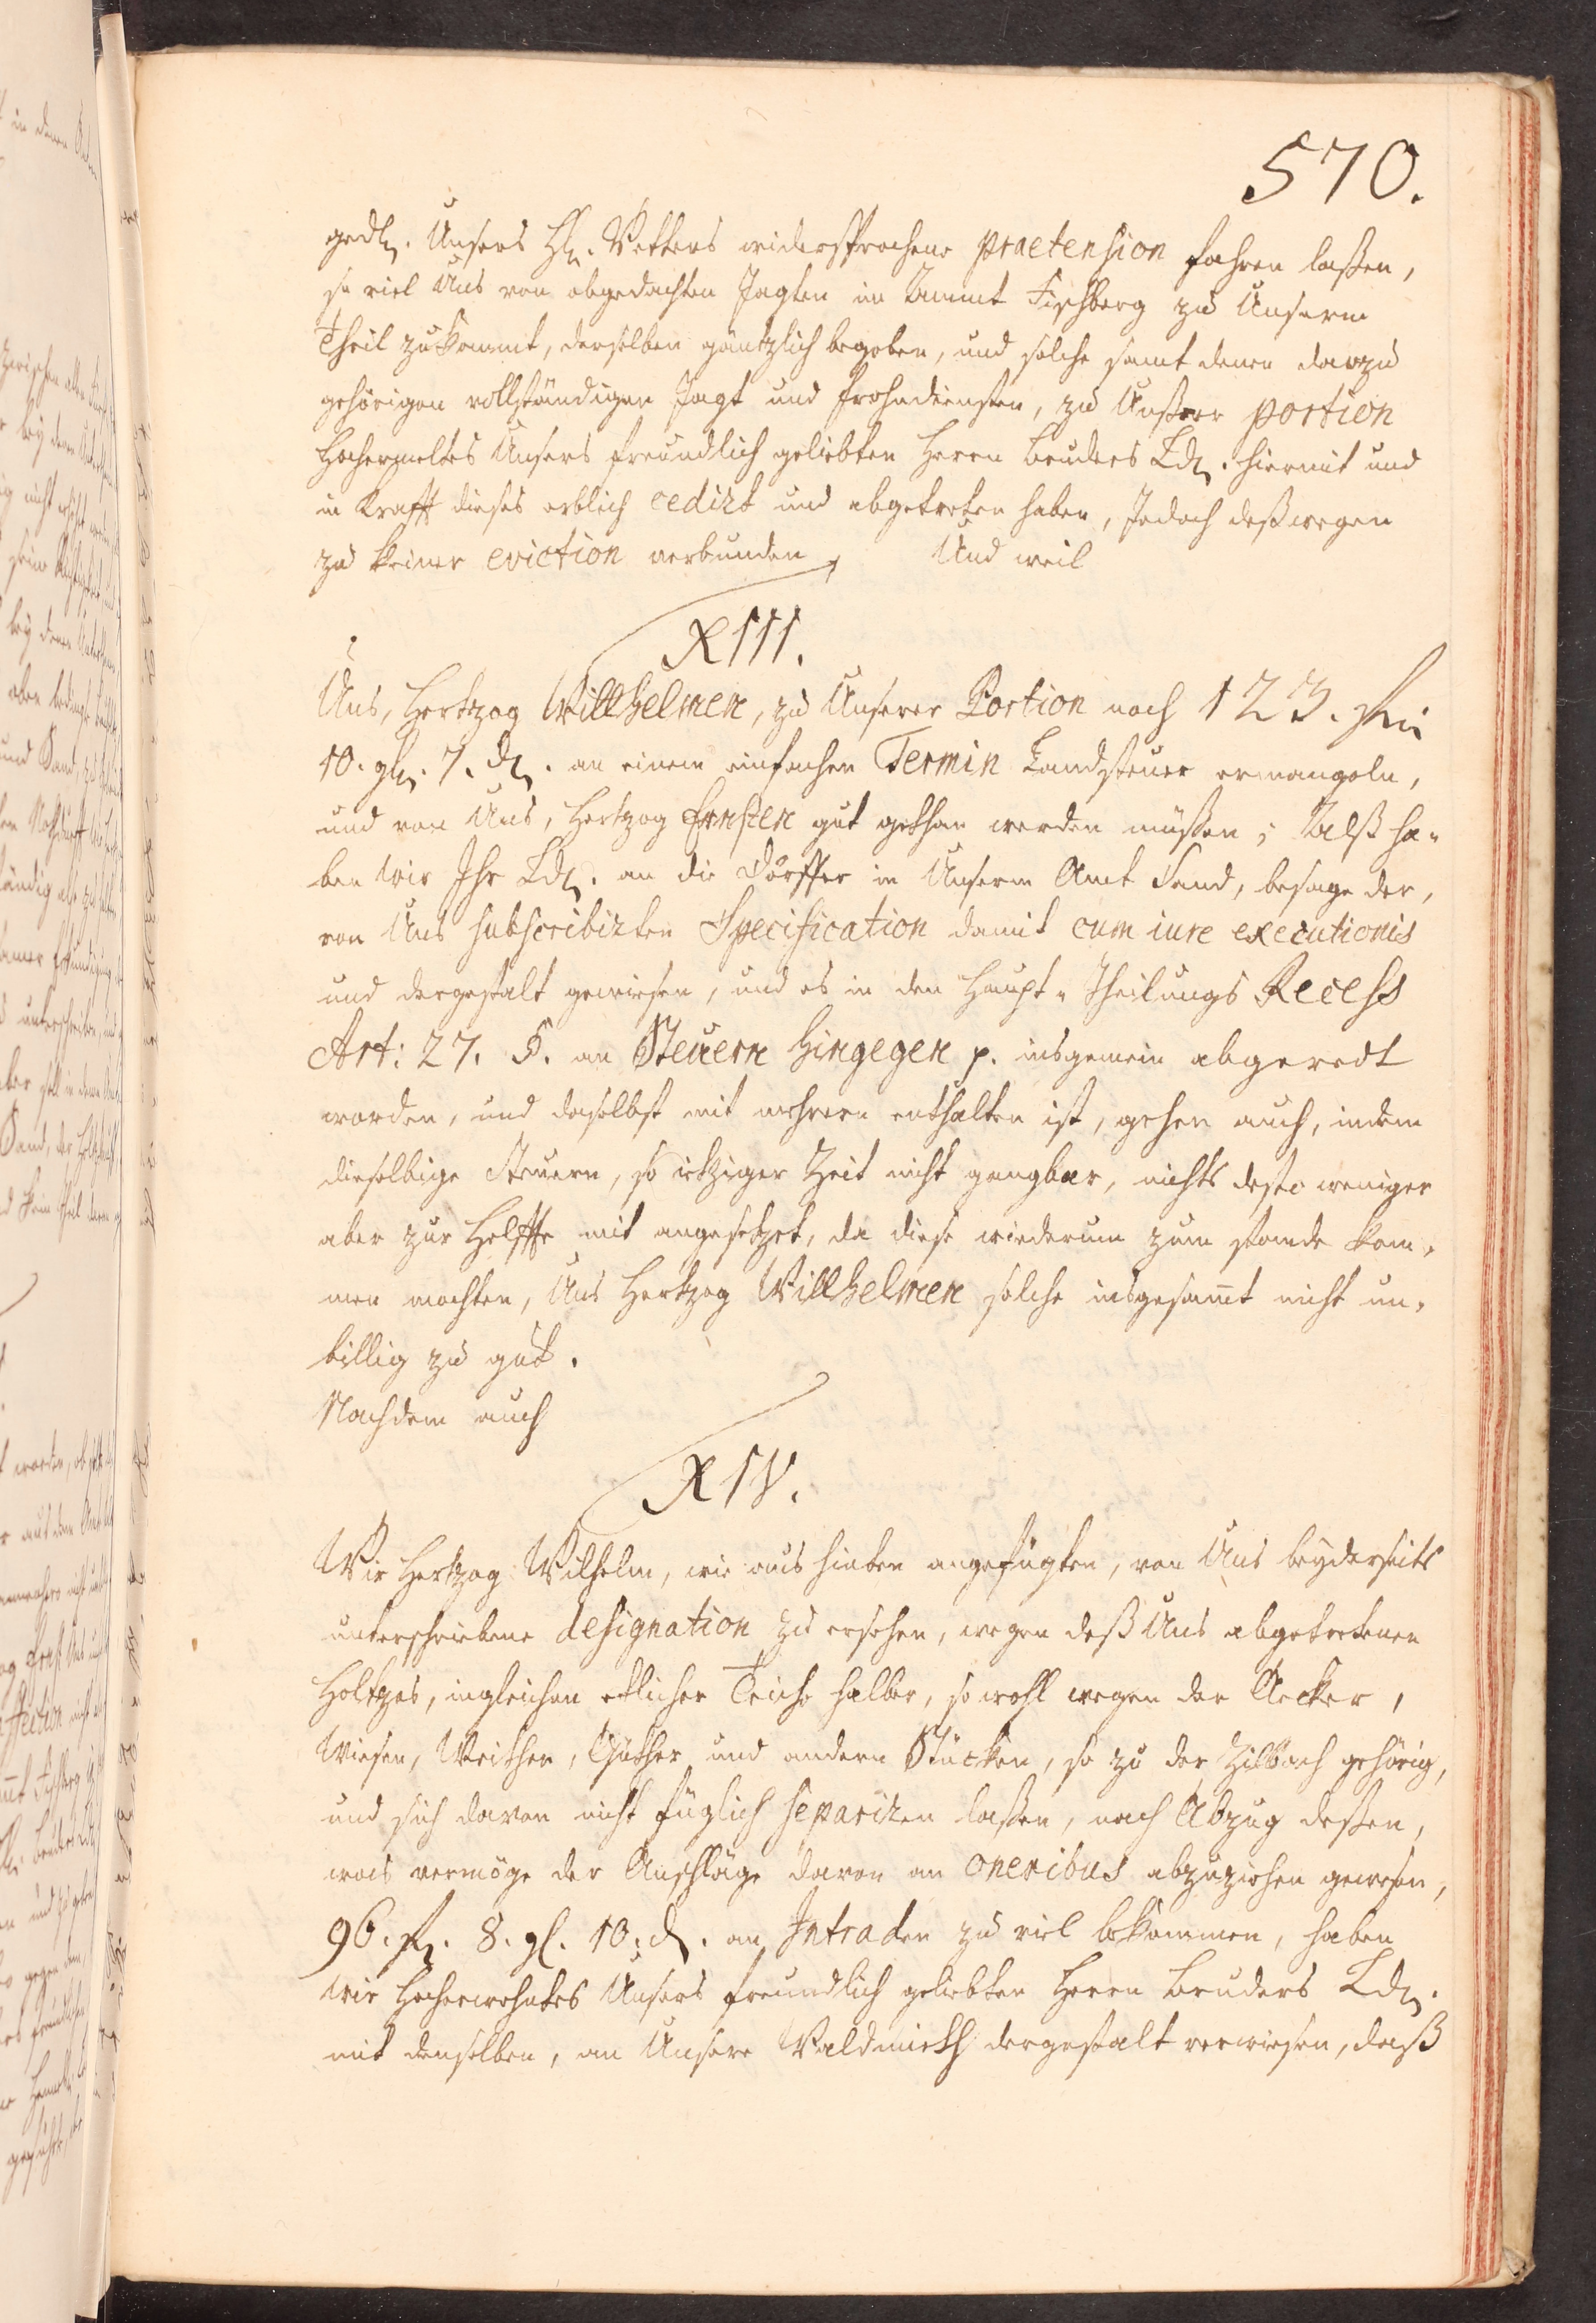 570.
gedl. Unsers Hl. Vetters widersprochene praetension fahren laßen,
so viel Uns von obgedachten Jagten im Ammt Fischberg zu Unserm
Theil zukommt, derselben gäntzlich begeben, und solche samt denen darzu
gehörigen vollständigen Jagt und Frohndiensten, zu Unßerer portion
Hochermeltes Unsers freundlich geliebten Herrn Bruders Ldn. hiermit und
in Krafft dieses erblich cedirt und abgetreten haben, Jedoch deßwegen
zu keiner eviction verbunden, Und weil
XIII.
Uns, Hertzog Willhelmen, zu Unserer Portion noch 123. fl.
10. gl. 7. d. an einem einfachen Termin Landsteuer ermangeln,
und von Uns, Hertzog Ernsten gut gethan werden müßen; Alß ha-
ben wir Jhr Ldn. an die Dörffer in Unserm Amt Sand, besage der,
von Uns subscribirten Specification damit cum iure executionis
und dergestalt gewiesen, und es in den Haupt-Theilungs Recess
Art: 27. §. an Steuern hingegen p. insgemein abgeredt
worden, und daselbst mit mehrern enthalten ist, gehen auch, indem
dieselbige Steuern, so itziger Zeit nicht gangbar, nichts desto weniger
aber zur Helffte mit angesetzet, da diese wiederum zum stande kom-
men mochten, Uns Hertzog Willhelmen solche insgesamt nicht un-
billig zu gut.
Nachdem auch
XIV.
Wir Hertzog Wilhelm, wie aus hinten angefügten, von Uns beyderseits
unterschriebene designation zu ersehen, wegen deß Uns abgetretenen
Holtzes, ingleichen etlicher Teiche halber, so wohl wegen der Aecker,
Wiesen, Weither, Güther und andern Stücken, so zu der Zillbach gehörig,
und sich davon nicht füglich separiren laßen, nach Abzug deßen,
was vermöge der Anschläge davon an oneribus abzuziehen gewesen,
96. fl. 8. gl. 10. d. an Intraden zu viel bekommen, haben
wir Hocherwehntes Unsers freundlich geliebten Herrn Bruders Ldn.
mit denselben, an Unsere Waldmieth dergestalt verwiesen, daß